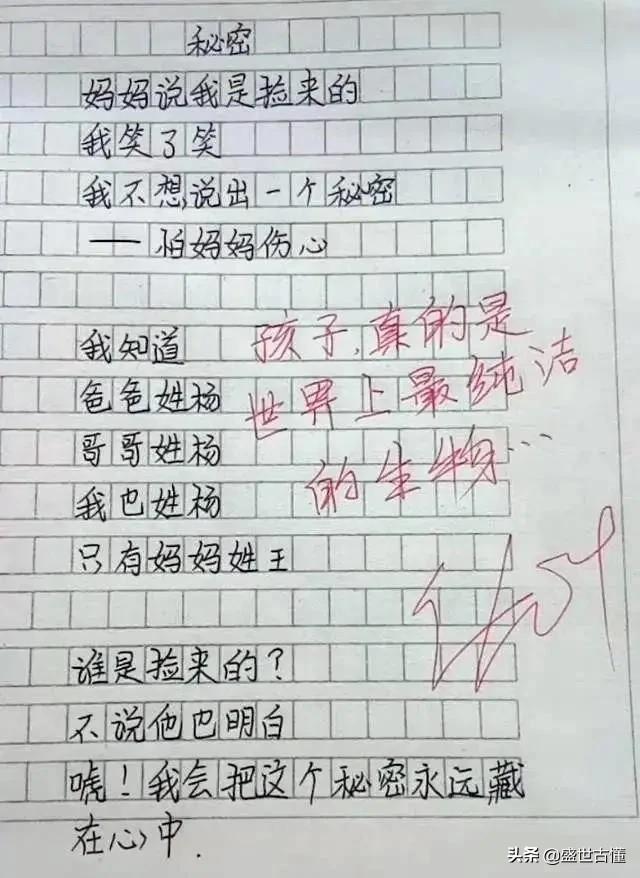 秘密
妈妈说我是捡来的
我笑了笑
我不想说出一个秘密
——怕妈妈伤心
我知道
爸爸姓杨
哥哥姓杨
我也姓杨
只有妈妈姓王
谁是捡来的?
不说他也明白
唬!我会把这个秘密永远藏
在心中.
孩子,真的是
世界上最纯洁
的生物…
头条 @盛世古懂